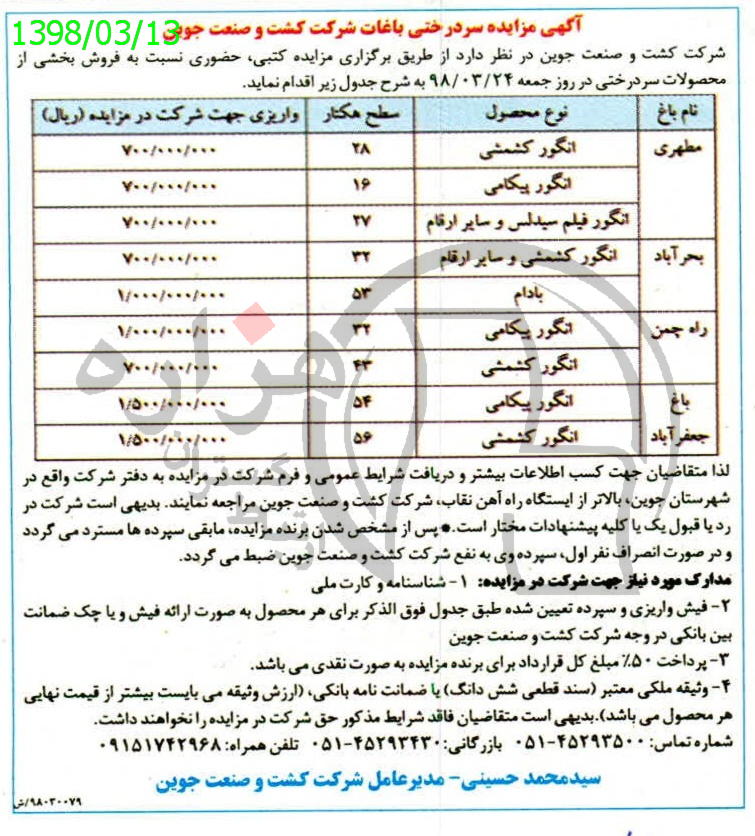 آگهی مزایده سردرختی باغات شرکت کشت و صنعت جوین
1398/03/13
شرکت کشت و صنعت جوین در نظر دارد از طریق برگزاری مزایده کتبی، حضوری نسبت به فروش بخشی از
محصولات سردرختی در روز جمعه ۹۸/۰۳/۲۴ به شرح جدول زیر اقدام نماید.
نام باغ نوع محصول سطح هکتار واریزی جهت شرکت در مزایده (ریال)
مطهری انگور کشمشی ۲۸ ۷۰۰/۰۰۰/۰۰۰
انگور پیکامی ۱۶ ۷۰۰/۰۰۰/۰۰۰
انگور فیلم سیدلس و سایر ارقام ۲۷ ۷۰۰/۰۰۰/۰۰۰
بحرآباد انگور کشمشی و سایر ارقام ۳۲ ۷۰۰/۰۰۰/۰۰۰
بادام ۵۳ ۱/۰۰۰/۰۰۰/۰۰۰
راه چمن انگور پیکامی ۳۲ ۱/۰۰۰/۰۰۰/۰۰۰
انگور کشمشی ۴۳ ۷۰۰/۰۰۰/۰۰۰
باغ انگور پیکامی ۵۴ ۱/۵۰۰/۰۰۰/۰۰۰
جعفرآباد انگور کشمشی ۵۶ ۱/۵۰۰/۰۰۰/۰۰۰
هزاره
لذا متقاضیان جهت کسب اطلاعات بیشتر و دریافت شرایط عمومی و فرم شرکت در مزایده به دفتر شرکت واقع در
شهرستان جوین، بالاتر از ایستگاه راه آهن نقاب، شرکت کشت و صنعت جوین مراجعه نمایند. بدیهی است شرکت در
رد یا قبول یک یا کلیه پیشنهادات مختار است.●پس از مشخص شدن برنده مزایده، مابقی سپرده ها مسترد می گردد
و در صورت انصراف نفر اول، سپرده وی به نفع شرکت کشت و صنعت جوین ضبط می گردد.
مدارک مورد نیاز جهت شرکت در مزایده: ۱- شناسنامه و کارت ملی
۲- فیش واریزی و سپرده تعیین شده طبق جدول فوق الذکر برای هر محصول به صورت ارائه فیش و یا چک ضمانت
بین بانکی در وجه شرکت کشت و صنعت جوین
۳- پرداخت ۵۰٪ مبلغ کل قرارداد برای برنده مزایده به صورت نقدی می باشد.
۴- وثیقه ملکی معتبر (سند قطعی شش دانگ) یا ضمانت نامه بانکی، (ارزش وثیقه می بایست بیشتر از قیمت نهایی
هر محصول می باشد).بدیهی است متقاضیان فاقد شرایط مذکور حق شرکت در مزایده را نخواهند داشت.
شماره تماس: ۴۵۲۹۳۵۰۰-۰۵۱ بازرگانی: ۴۵۲۹۳۴۳۰-۰۵۱ تلفن همراه: ۰۹۱۵۱۷۴۲۹۶۸
سیدمحمد حسینی- مدیرعامل شرکت کشت و صنعت جوین
۹۸۰۳۰۰۷۹/ش